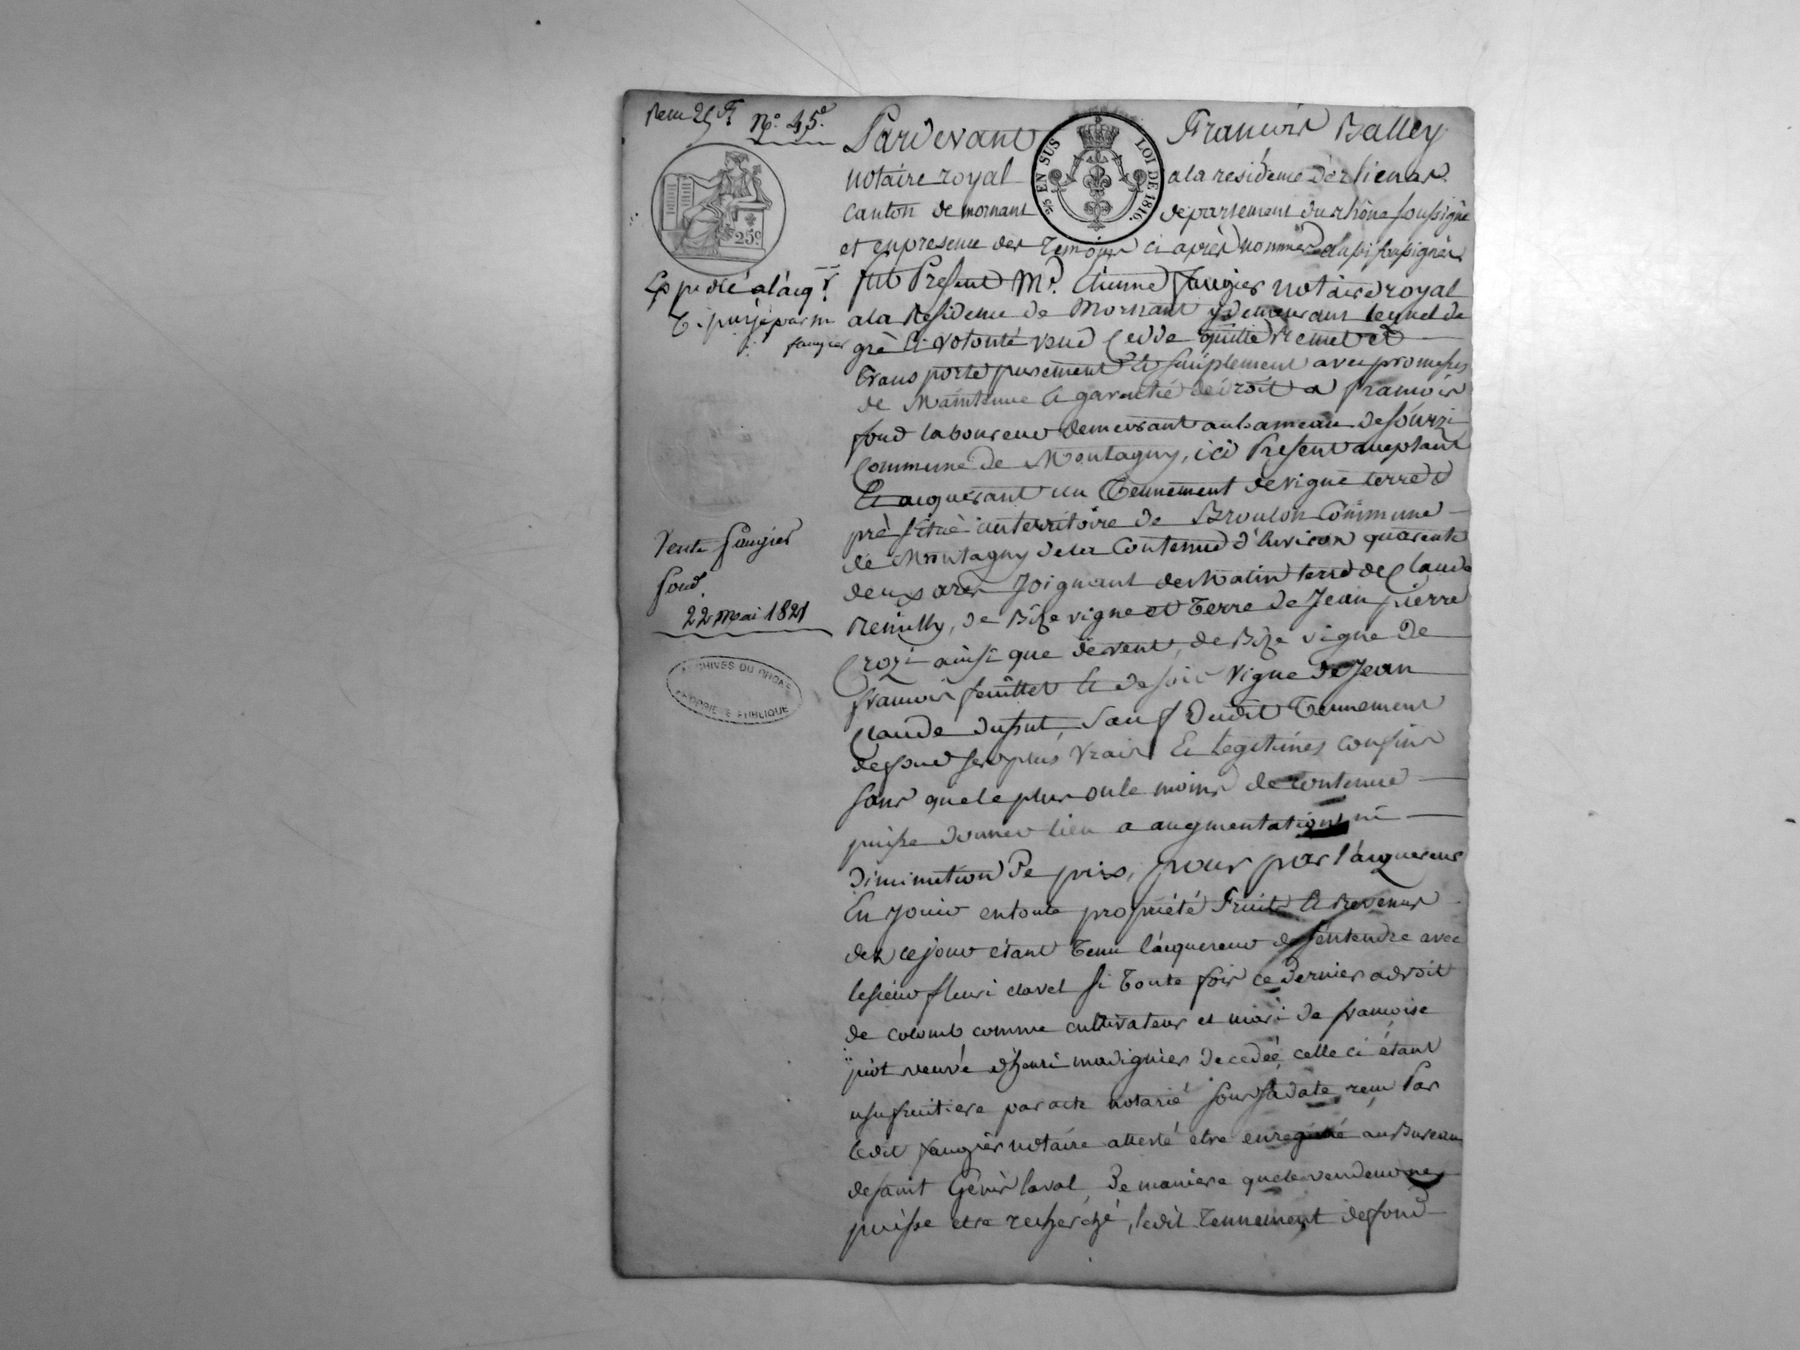 N.º 45.e
Pardevant François Balley
notaire royal a la residence d'orlienas
canton de mornant departement du rhône soussigné
et en presence des temoins ci après nommés aussi soussignés
fut Present Mr. Etienne faugier notaire royal
a la Residence de Mornant y demeurant lequel de
gré & volonté vend cedde quitte Remet et
transporte purement & simplement avec promesses
de Maintenue & garentie de droit a François
fond laboureur demeurant au hameau de sourzi
Commune de Montagny, ici Present acceptant
Et acquerant un Tennement de vigne terre &
pré situé au territoire de Broulon Commune
de Montagny de la Contenue d'environ quarente
deux ares Joignant de Matin terre de Claude
Remilly, de Bize vigne et Terre de Jean pierre
Crozi ainsi que de vent, de Bize vigne de
françois feuillet & de soir vigne de Jean
Claude dussut, Sauf dudit Tennement
de fond ses plus vrais Et legitimes confins
sans que le plus ou le moins de contenue
puisse donner lieu a augmentation ni
diminution de prix, pour par l'acquereur
En Jouir en toute propriété Fruits & Revenus
dez ce jour étant tenu l'acquereur de s'entendre avec
le sieur fleuri clavel si toute fois ce dernier a droit
de colomb comme cultivateur et mari de françoise
piot veuve d'henri madignier decedé, celle ci étant
usufruitiere par acte notarié sous sa date, recu Par
ledit faugier notaire attesté etre enregistré au Bureau
de saint Génis laval, de maniere que le vendeur ne
puisse etre recherché, ledit tennement de fond
25 c
25/s EN SUS LOI DE 1816.
Expedié a l'acqr.
faugier
Vente faugier
fond.
22 mai 1821
ARCHIVES DU RHONE
PROPRIETE PUBLIQUE